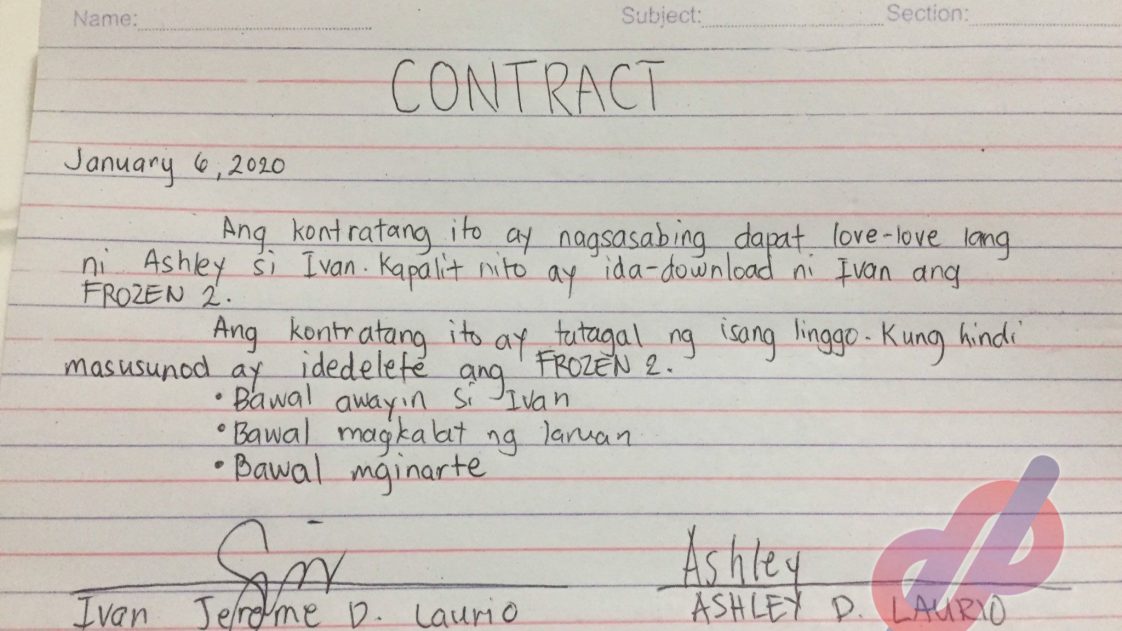 Name: Subject: Section:
CONTRACT
January 6, 2020
Ang kontratang ito ay nagsasabing dapat love-love lang
ni Ashley si Ivan. Kapalit nito ay ida-download ni Ivan ang
FROZEN 2.
Ang kontratang ito ay tatagal ng isang linggo. Kung hindi
masusunod ay idedelete ang FROZEN 2.
• Bawal awayin si Ivan
• Bawal magkalat ng laruan
• Bawal mginarte
Ashley
Ivan Jerome D. Laurio ASHLEY D. LAURIO